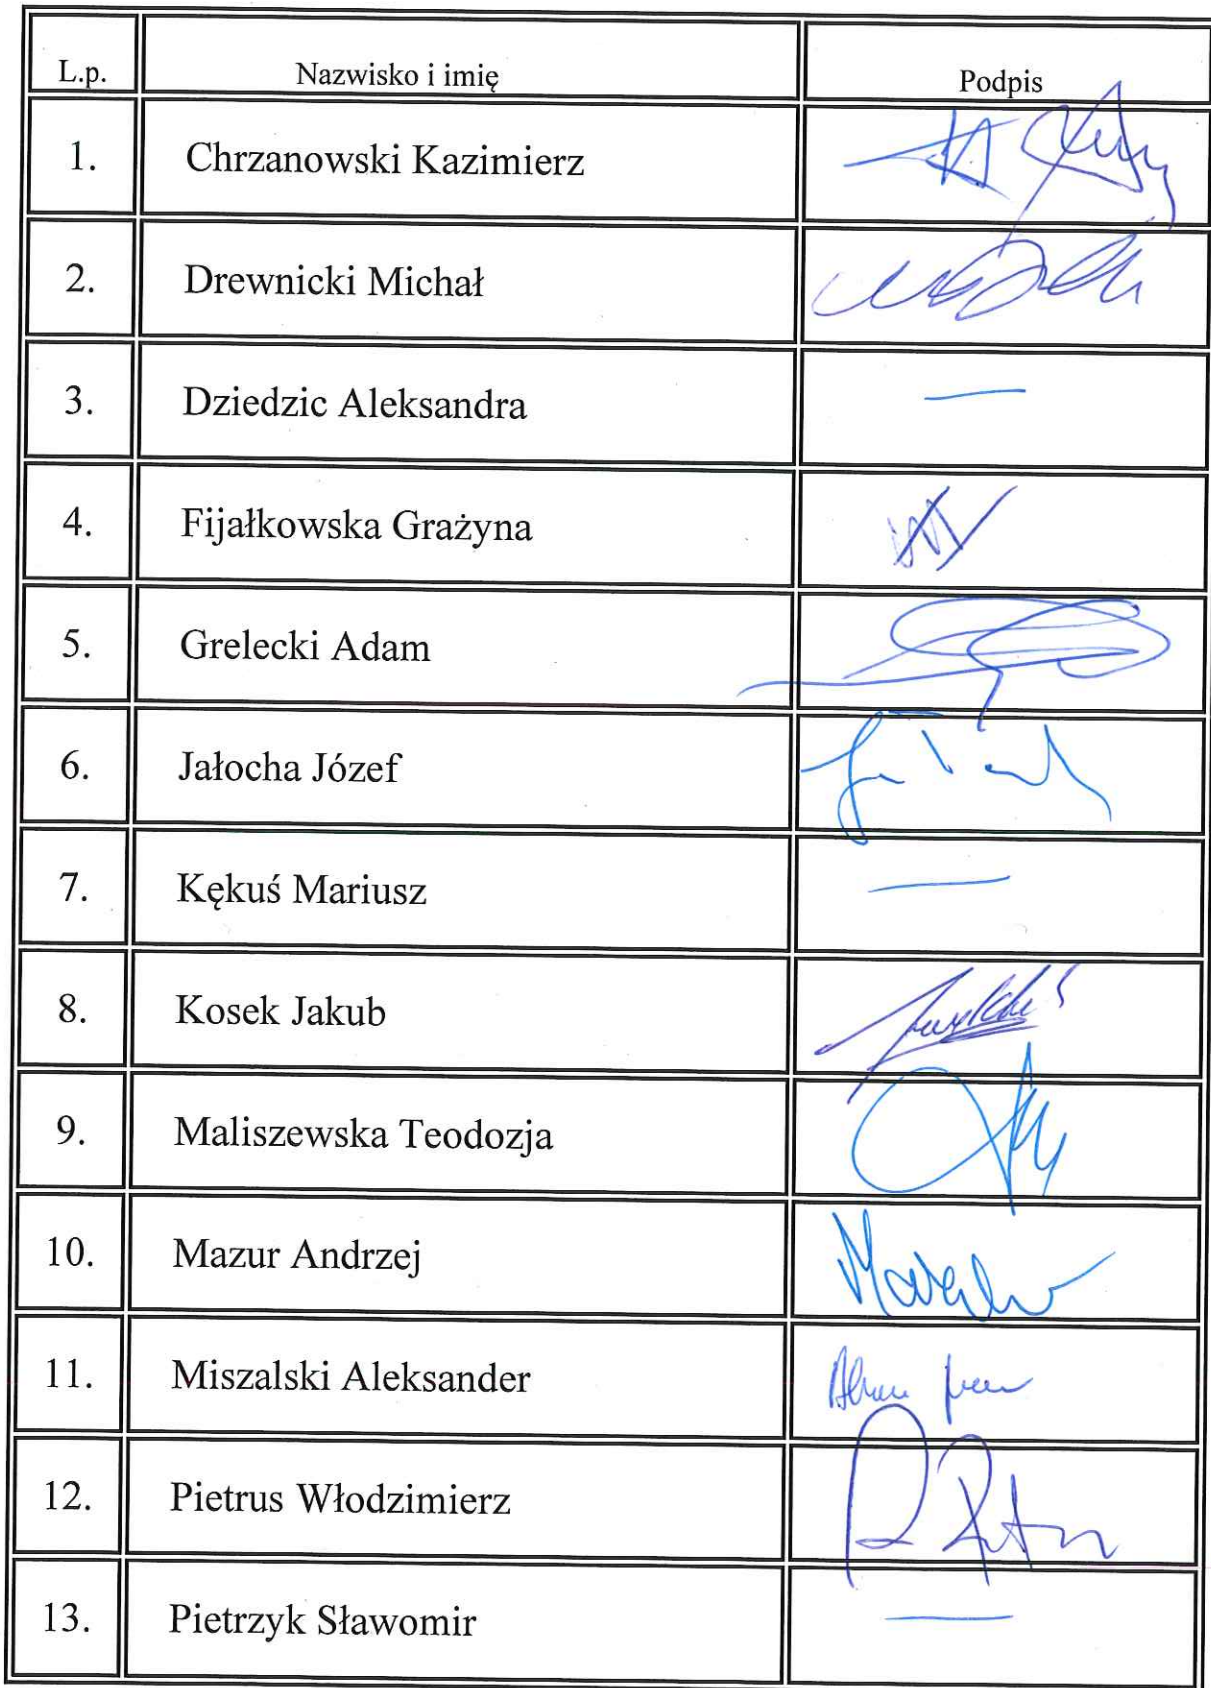 L.p. Nazwisko i imię Podpis
1. Chrzanowski Kazimierz
2. Drewnicki Michał
3. Dziedzic Aleksandra —
4. Fijałkowska Grażyna
5. Grelecki Adam
6. Jałocha Józef
7. Kękuś Mariusz —
8. Kosek Jakub
9. Maliszewska Teodozja
10. Mazur Andrzej
11. Miszalski Aleksander
12. Pietrus Włodzimierz
13. Pietrzyk Sławomir —